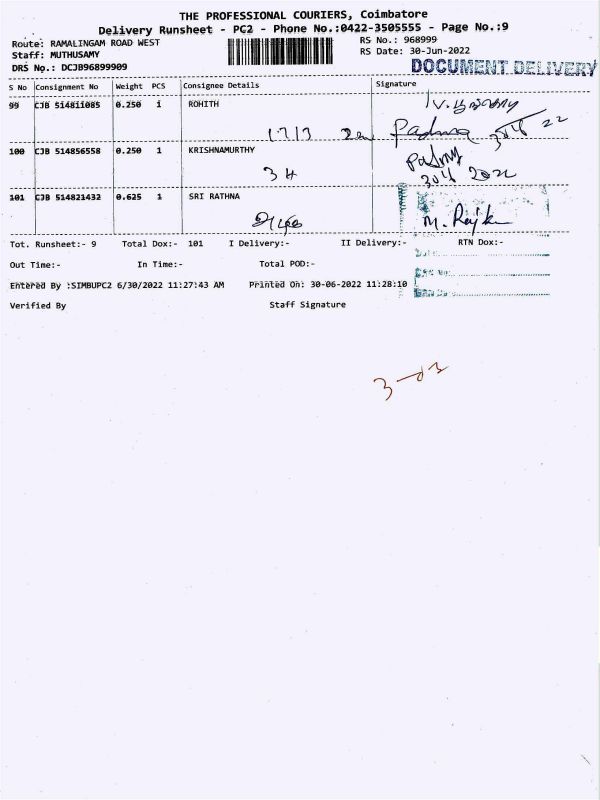 THE PROFESSIONAL COURIERS, Coimbatore
Delivery Runsheet - PC2 - Phone No.:0422-3505555 - Page No.:9
Route: RAMALINGAM ROAD WEST
RS No.: 968999
Staff: MUTHUSAMY
RS Date: 30-Jun-2022
DRS No.: DCJB96899909
DOCUMENT DELIVERY
S No Consignment No Weight PCS Consignee Details Signature
99 CJB 514811085 0.250 1 ROHITH
1713 Padma 30/6/22
100 CJB 514856558 0.250 1 KRISHNAMURTHY
34 Padma
30/6 2022
101 CJB 514821432 0.625 1 SRI RATHNA
M. Rajk
Tot. Runsheet:- 9 Total Dox:- 101 I Delivery:- II Delivery:- RTN Dox:-
Out Time:- In Time:- Total POD:-
Entered By :SIMBUPC2 6/30/2022 11:27:43 AM Printed On: 30-06-2022 11:28:10
Verified By Staff Signature